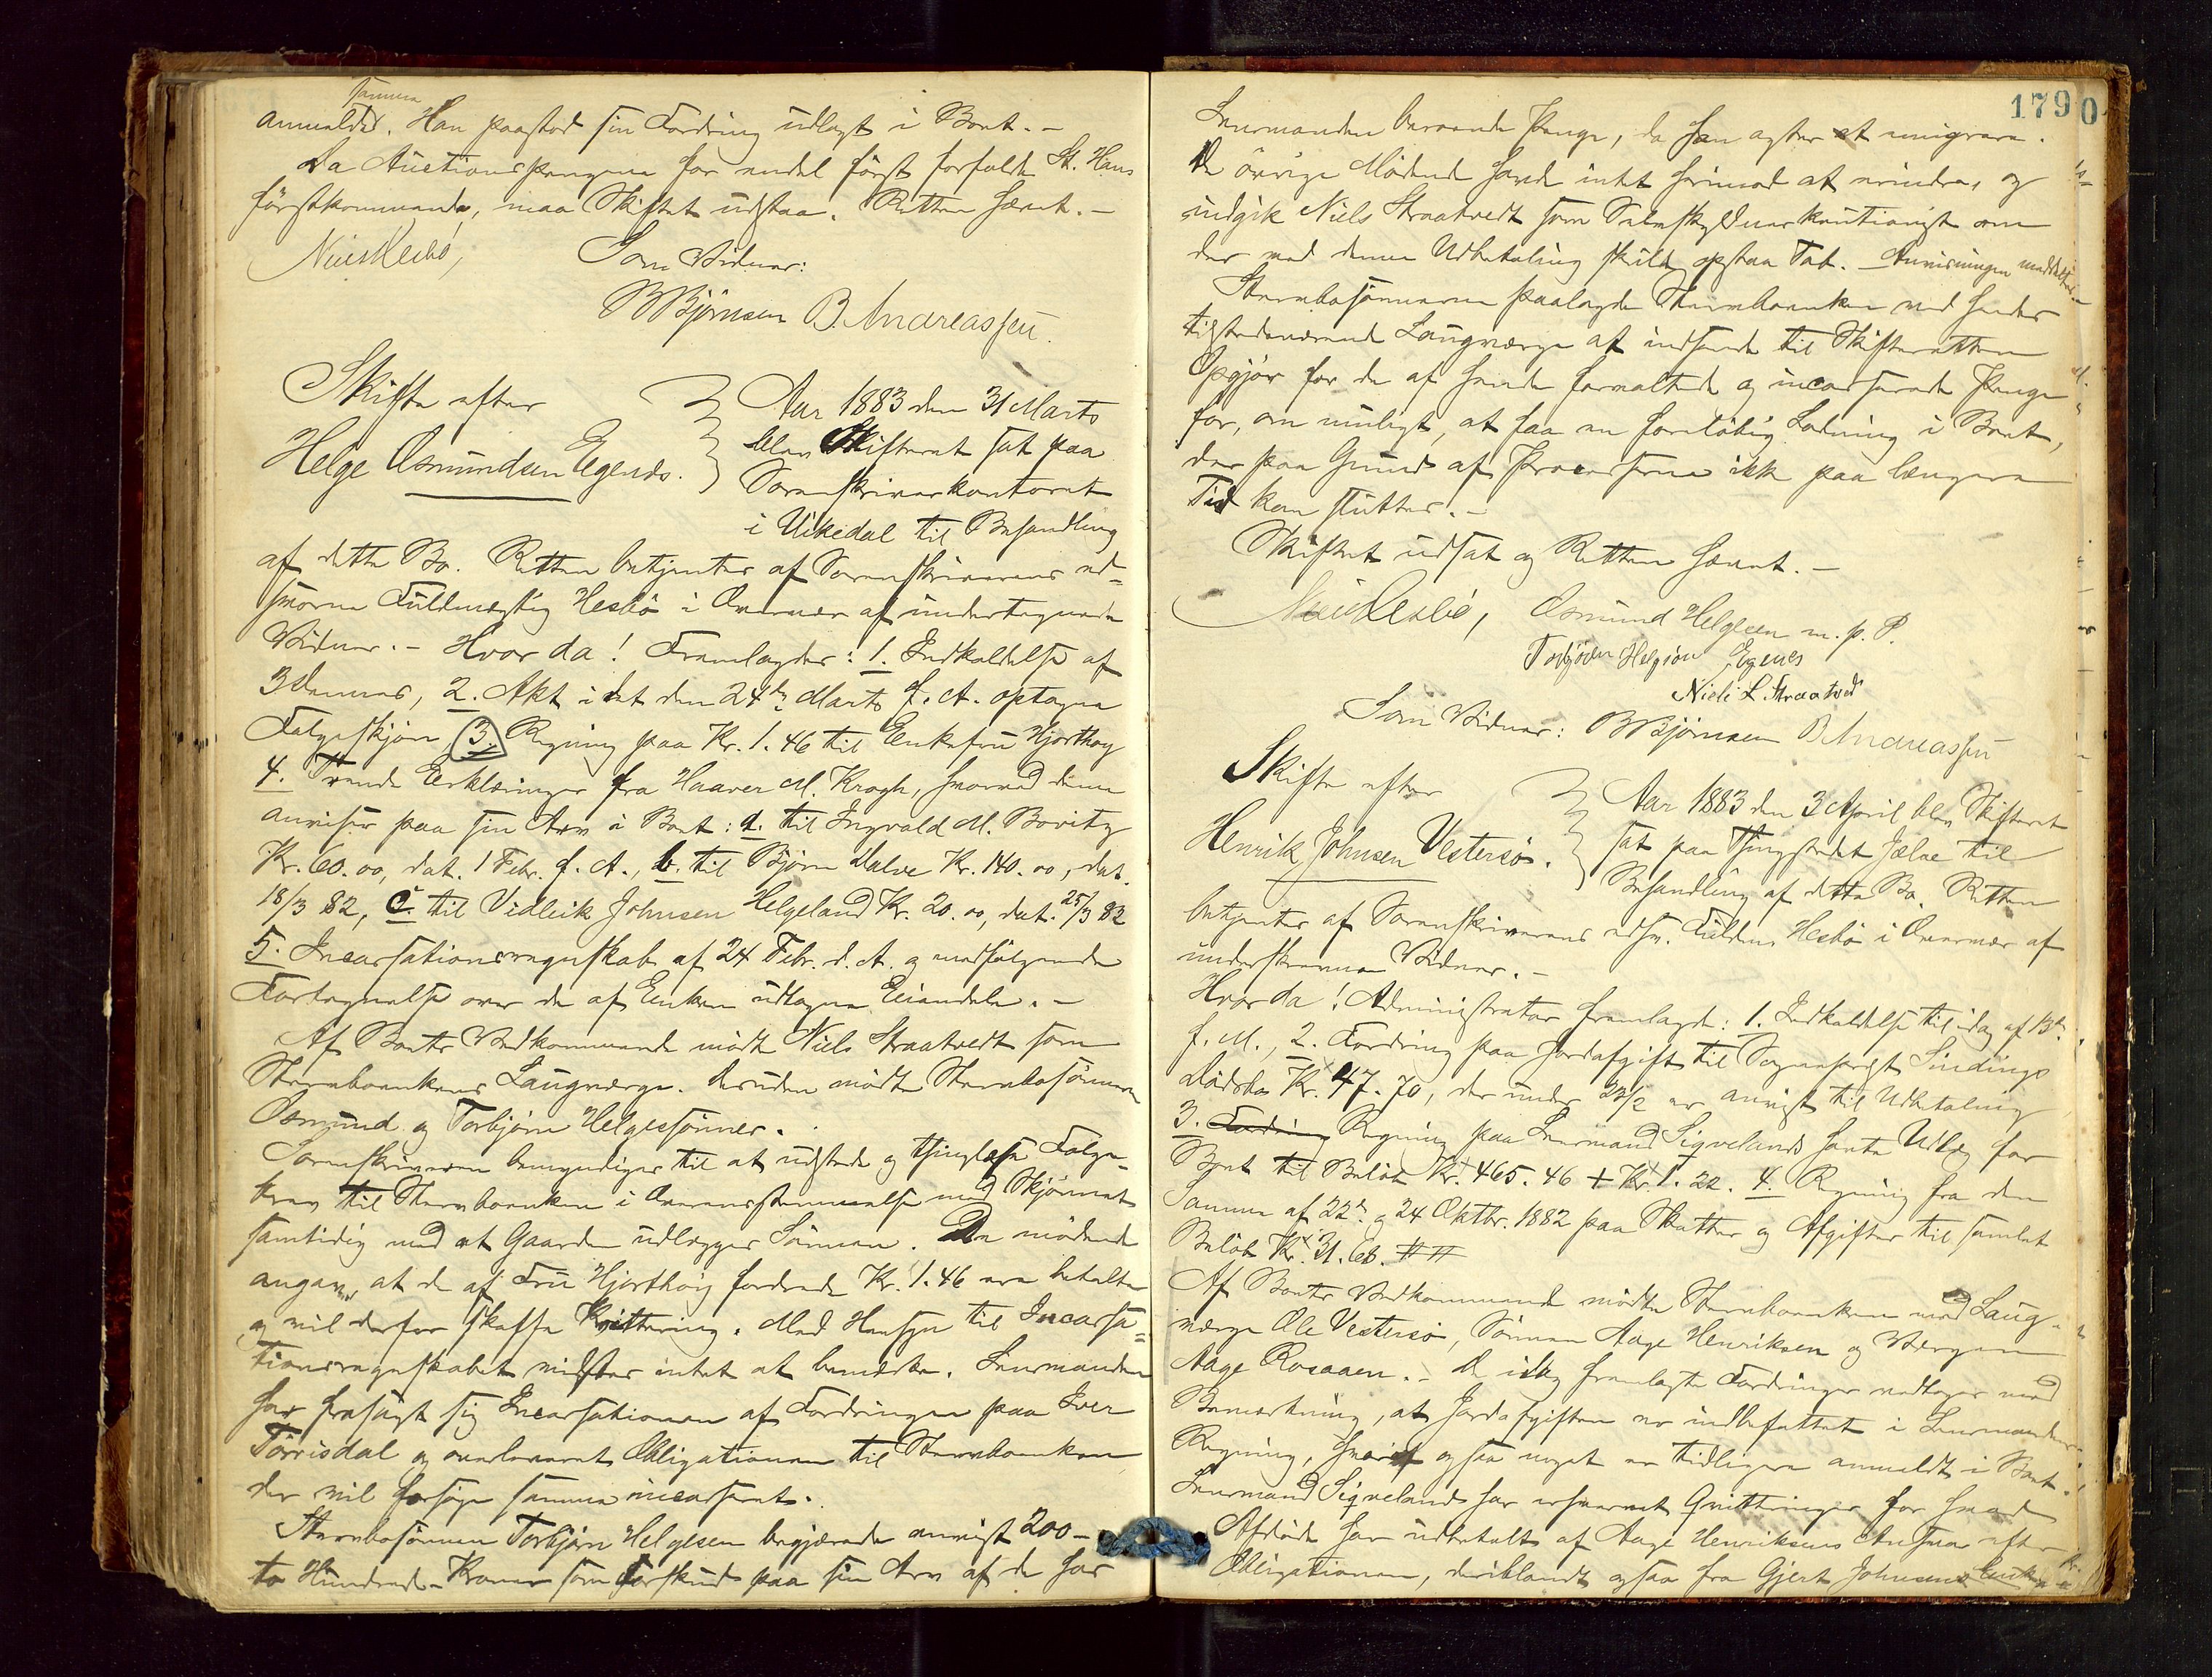 Samme
anmeldt. Han paastod sin Fordring udlagt i Boet.-
Da Auctionspengene for endel först forfalde St. Hans
förstkommende, maa Skiftet udstaa. Retten hævet.-
Nils Hesbö,
Som Vidner:
BBjörnsen B. Andreassen.
Skifte efter
Helge Osmundsen Egenæs.
Aar 1883 den 31 Marts
blev Skifteret sat paa
Sorenskriverkontoret
i Vikedal til Behandling
af dette Bo. Retten betjentes af Sorenskriverens ed-
svorne Fuldmægtig Hesbö i Overvær af undertegnede
Vidner.- Hvor da! Fremlagdes: 1. Indkaldelse af
3 dennes, 2. Akt i det den 24de Marts f. A. optagne
Folgeskjön, 3. Regning paa Kr. 1.46 til Enkefru Hjorthøy
4. Trende Erklæringer fra Haaver M. Krogh, hvorved denne
anviser paa sin Arv i Boet: a. til Ingvald M. Bovitz
Kr. 60.00, dat. 1 Febr. f. A., b. til Björn Dalve Kr. 140.00, dat.
18/3 82, c. til Vidleik Johnsen Helgeland Kr. 20.00, dat. 25/3 82
5. Incassationsregnskab af 24 Febr. d. A. og medfölgende
Fortegnelse over de af Enken udtagne Eiendele.-
Af Boets Vedkommende mödte Niels Straatvedt som
Stervboenkens Laugværge. Desuden mödte Stervbosönnerne
Osmund og Torbjörn Helgesönner.
Sorenskriveren bemyndiges til at udstede og thinglæse Folge-
brev til Stervboenken i Overensstemmelse med Skjönnet
samtidig med at Gaarden udlægges Sönnen. De mödende
angav, at de af Fru Hjorthöy fordrede Kr. 1.46 ere betalte
og vil derfor skaffe Kvittering. Med Hensyn til Incassa-
tionsregnskabet vidstes intet at bemærke. Lensmanden
har frasagt sig Incassationen af Fordringen paa Iver
Törrisdal og overleveret Obligationen til Stervboenken
der vil forsöge samme incasseret.
Stervbosönnen Torbjörn Helgesen begjærede anvist 200-
to Hundrede-Kroner som Forskud paa sin Arv af de hos
1790
Lensmanden beroende Penge, da han agter at emigrere.
De övrige Mödende havde intet herimod at erindre, og
indgik Niels Straatvedt som Selvskyldnerkautionist om
der ved denne Udbetaling skulde opstaa Tab. - Anvisningen meddeltes-
Stervbosönnerne paalagde Stervboenken ved hendes
tilstedeværende Laugværge at indsende til Skifteretten
Opgjör for de af hende forvaltede og incasserede Penge
for, om muligt, at faa en foreløbig Lodning i Boet,
der paa Grund af Processerne ikke paa længere
Tid kan sluttes.-
Skiftet udsat og Retten hævet.-
Nils Hesbö, Osmund Helgesen m. p. P.
Torbjörn Helgsøn Egenes
Niels L. Straatved
Som Vidner: BBjörnsen B Andreassen
Skifte efter
Henrik Johnsen Vestersö.
Aar 1883 den 3 April blev Skifteret
sat paa Thingstedet Jelse til
Behandling af dette Bo. Retten
betjentes af Sorenskriverens edsv. Fuldm. Hesbö i Overvær af
underskrevne Vidner.-
Hvor da! Administrator fremlagde: 1. Indkaldelse til idag af 13de
f. M., 2. Fordring paa Jordafgift til Sogneprest Sindings
Dödsbo Kr. 47.70, der under 23/2 er anvist til Udbetaling
3. Fordring Regning paa Lensmand Siqvelands havte Udlæg for
Boet til Belöb Kr. 465.46 + Kr. 1.22. 4. Regning fra den
Samme af 22de og 24 Oktbr. 1882 paa Skatter og Afgifter til samlet
Belöb Kr. 31.66.
Af Boets Vedkommende mödte Stervboenken med Laug-
værge Ole Vestersö, Sönnen Aage Henriksen og Værgen
Aage Rosaaen.- De idag fremlagte Fordringer vedtoges med
Bemærkning, at Jordafgiften er indbefattet i Lensmandens
Regning, hvoraf ogsaa noget er tidligere anmeldt i Boet.
Lensmand Siqveland har erhvervet Qvitteringer for hvad
Afdöde har udbetalt af Aage Henriksens Ansvar efter
Obligationen, deriblandt ogsaa fra Gjert Johnsens Enke